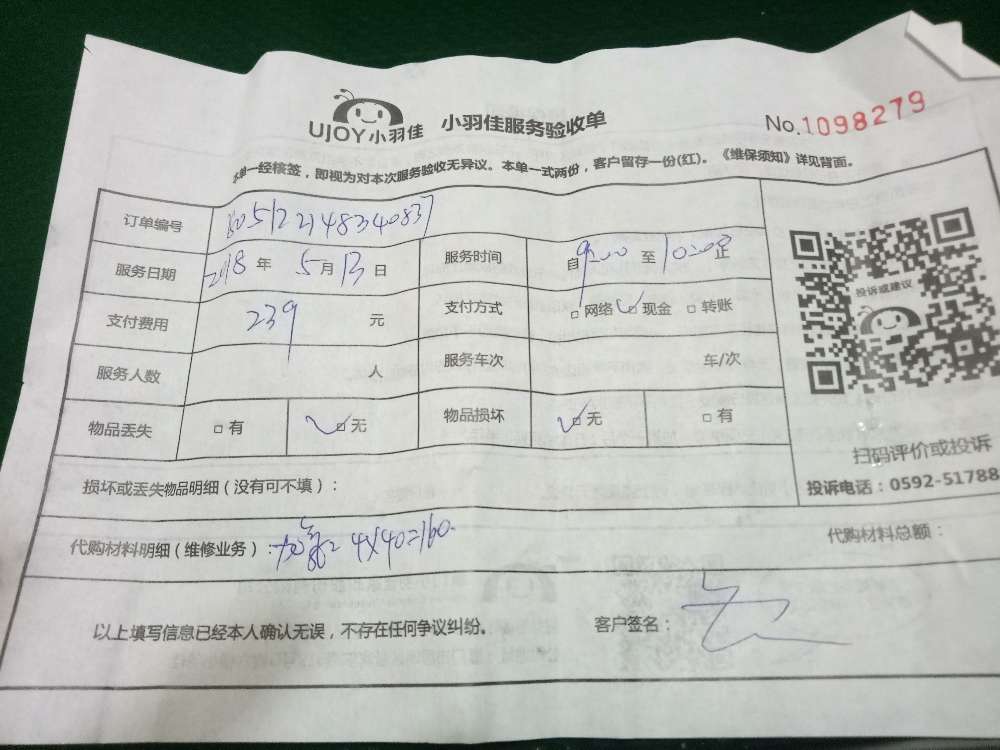 UJOY小羽佳 小羽佳服务验收单 No.1098279
本单一经核签，即视为对本次服务验收无异议。本单一式两份，客户留存一份(红)。《维保须知》详见背面。
订单编号
服务日期 2018 年 5 月 13 日 服务时间 自 9:00 至 10:00 止
支付费用 239 元 支付方式 □网络 □现金 □转账
服务人数 人 服务车次 车/次
物品丢失 □有 □无 物品损坏 □无 □有
投诉或建议
扫码评价或投诉
投诉电话：0592-51788
损坏或丢失物品明细（没有可不填）：
代购材料明细（维修业务）：加氟 4X40=160. 代购材料总额：
以上填写信息已经本人确认无误，不存在任何争议纠纷。 客户签名：